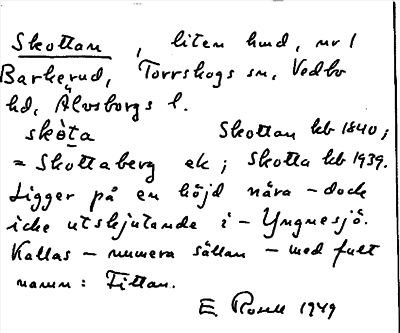 Skottan, liten hmd, nr 1
Barkerud, Torrskogs sn, Vedbo
hd, Älvsborgs l.
skòta Skottan kb 1840;
= Skottaberg ek; Skotta kb 1939.
Ligger på en höjd nära – dock
icke utskjutande i – Yngnesjö.
Kallas – numera sällan – med fult
namn: Fittan.
E. Rosell 1949